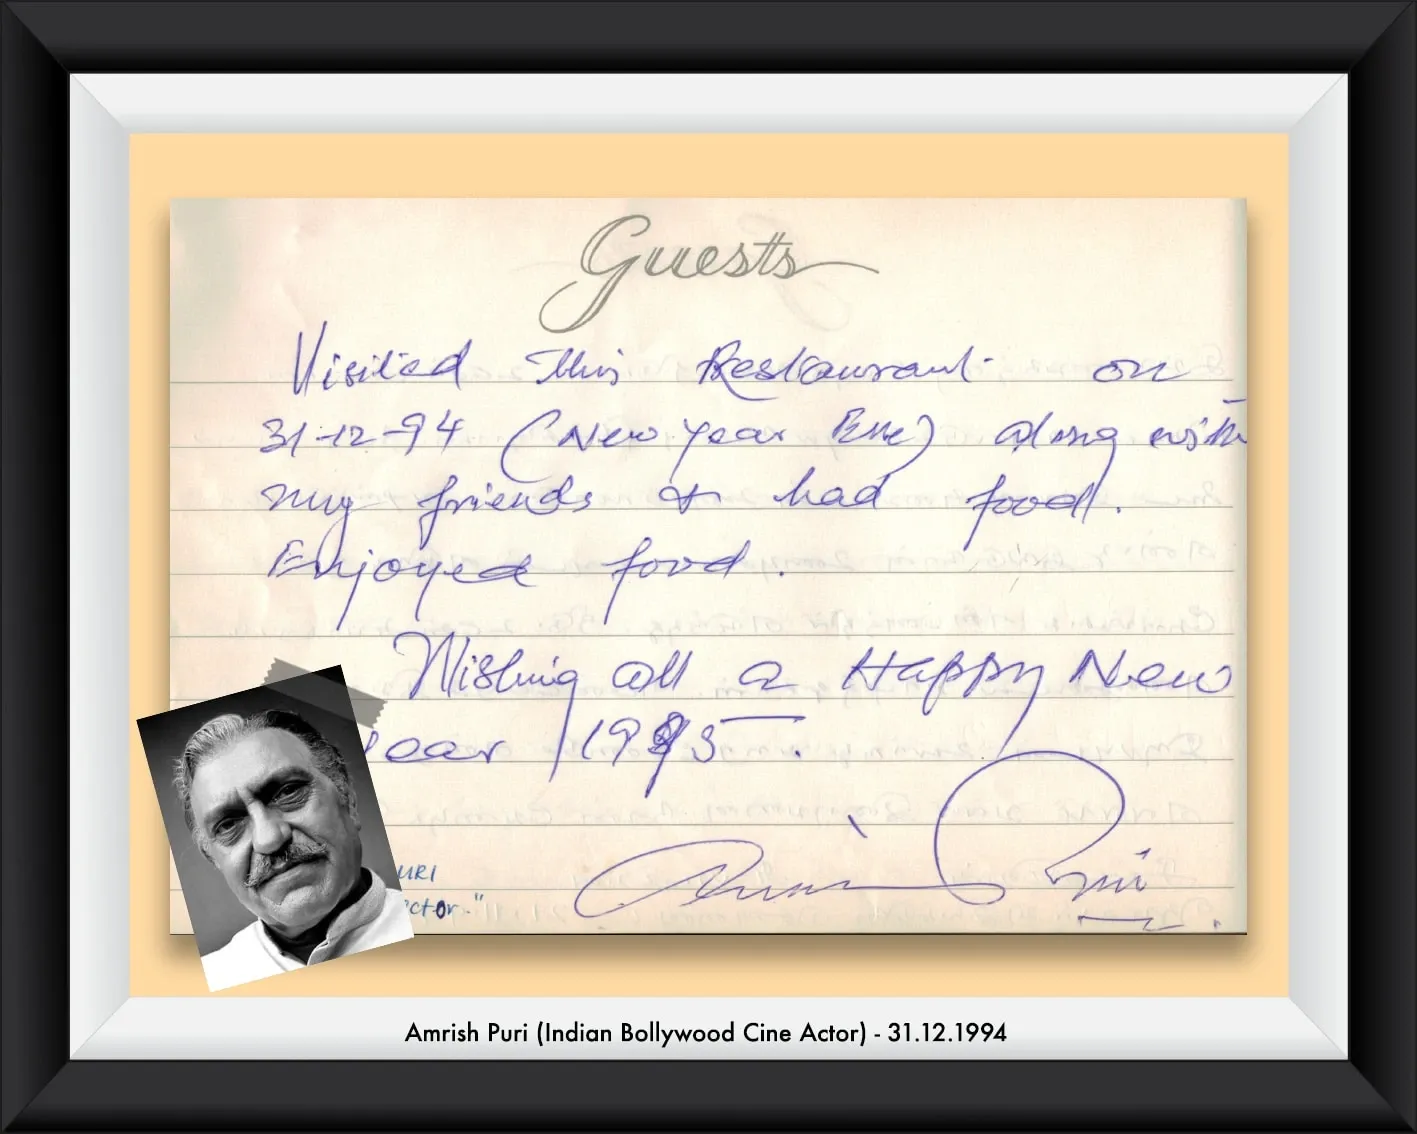 Guests
Visited this Restaurant on
31-12-94 (New year Eve) along with
my friends & had food.
Enjoyed food.
Wishing all a Happy New
year 1995.
URI
ctor."
Amrish Puri
Amrish Puri (Indian Bollywood Cine Actor) - 31.12.1994